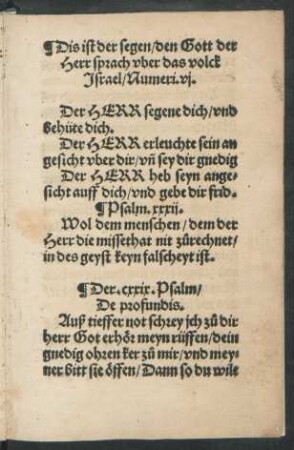 ¶Dis ist der segen/den Gott der
Herr sprach vber das volck
Israel/Numeri.vj.
Der HERR segene dich/vnd
behüte dich.
Der HERR erleuchte sein an
gesicht vber dir/vñ sey dir gnedig
Der HERR heb seyn ange-
sicht auff dich/vnd gebe dir frid.
¶Psalm.xxxij.
Wol dem menschen/dem der
Herr die missethat nit zůrechnet/
in des geyst keyn falscheyt ist.
¶Der.cxxix.Psalm/
De profundis.
Auß tieffer not schrey jch zů dir
herr Got erhör meyn růffen/dein
gnedig ohren ker zů mir/vnd mey-
ner bitt sie öffen/Dann so du wilt